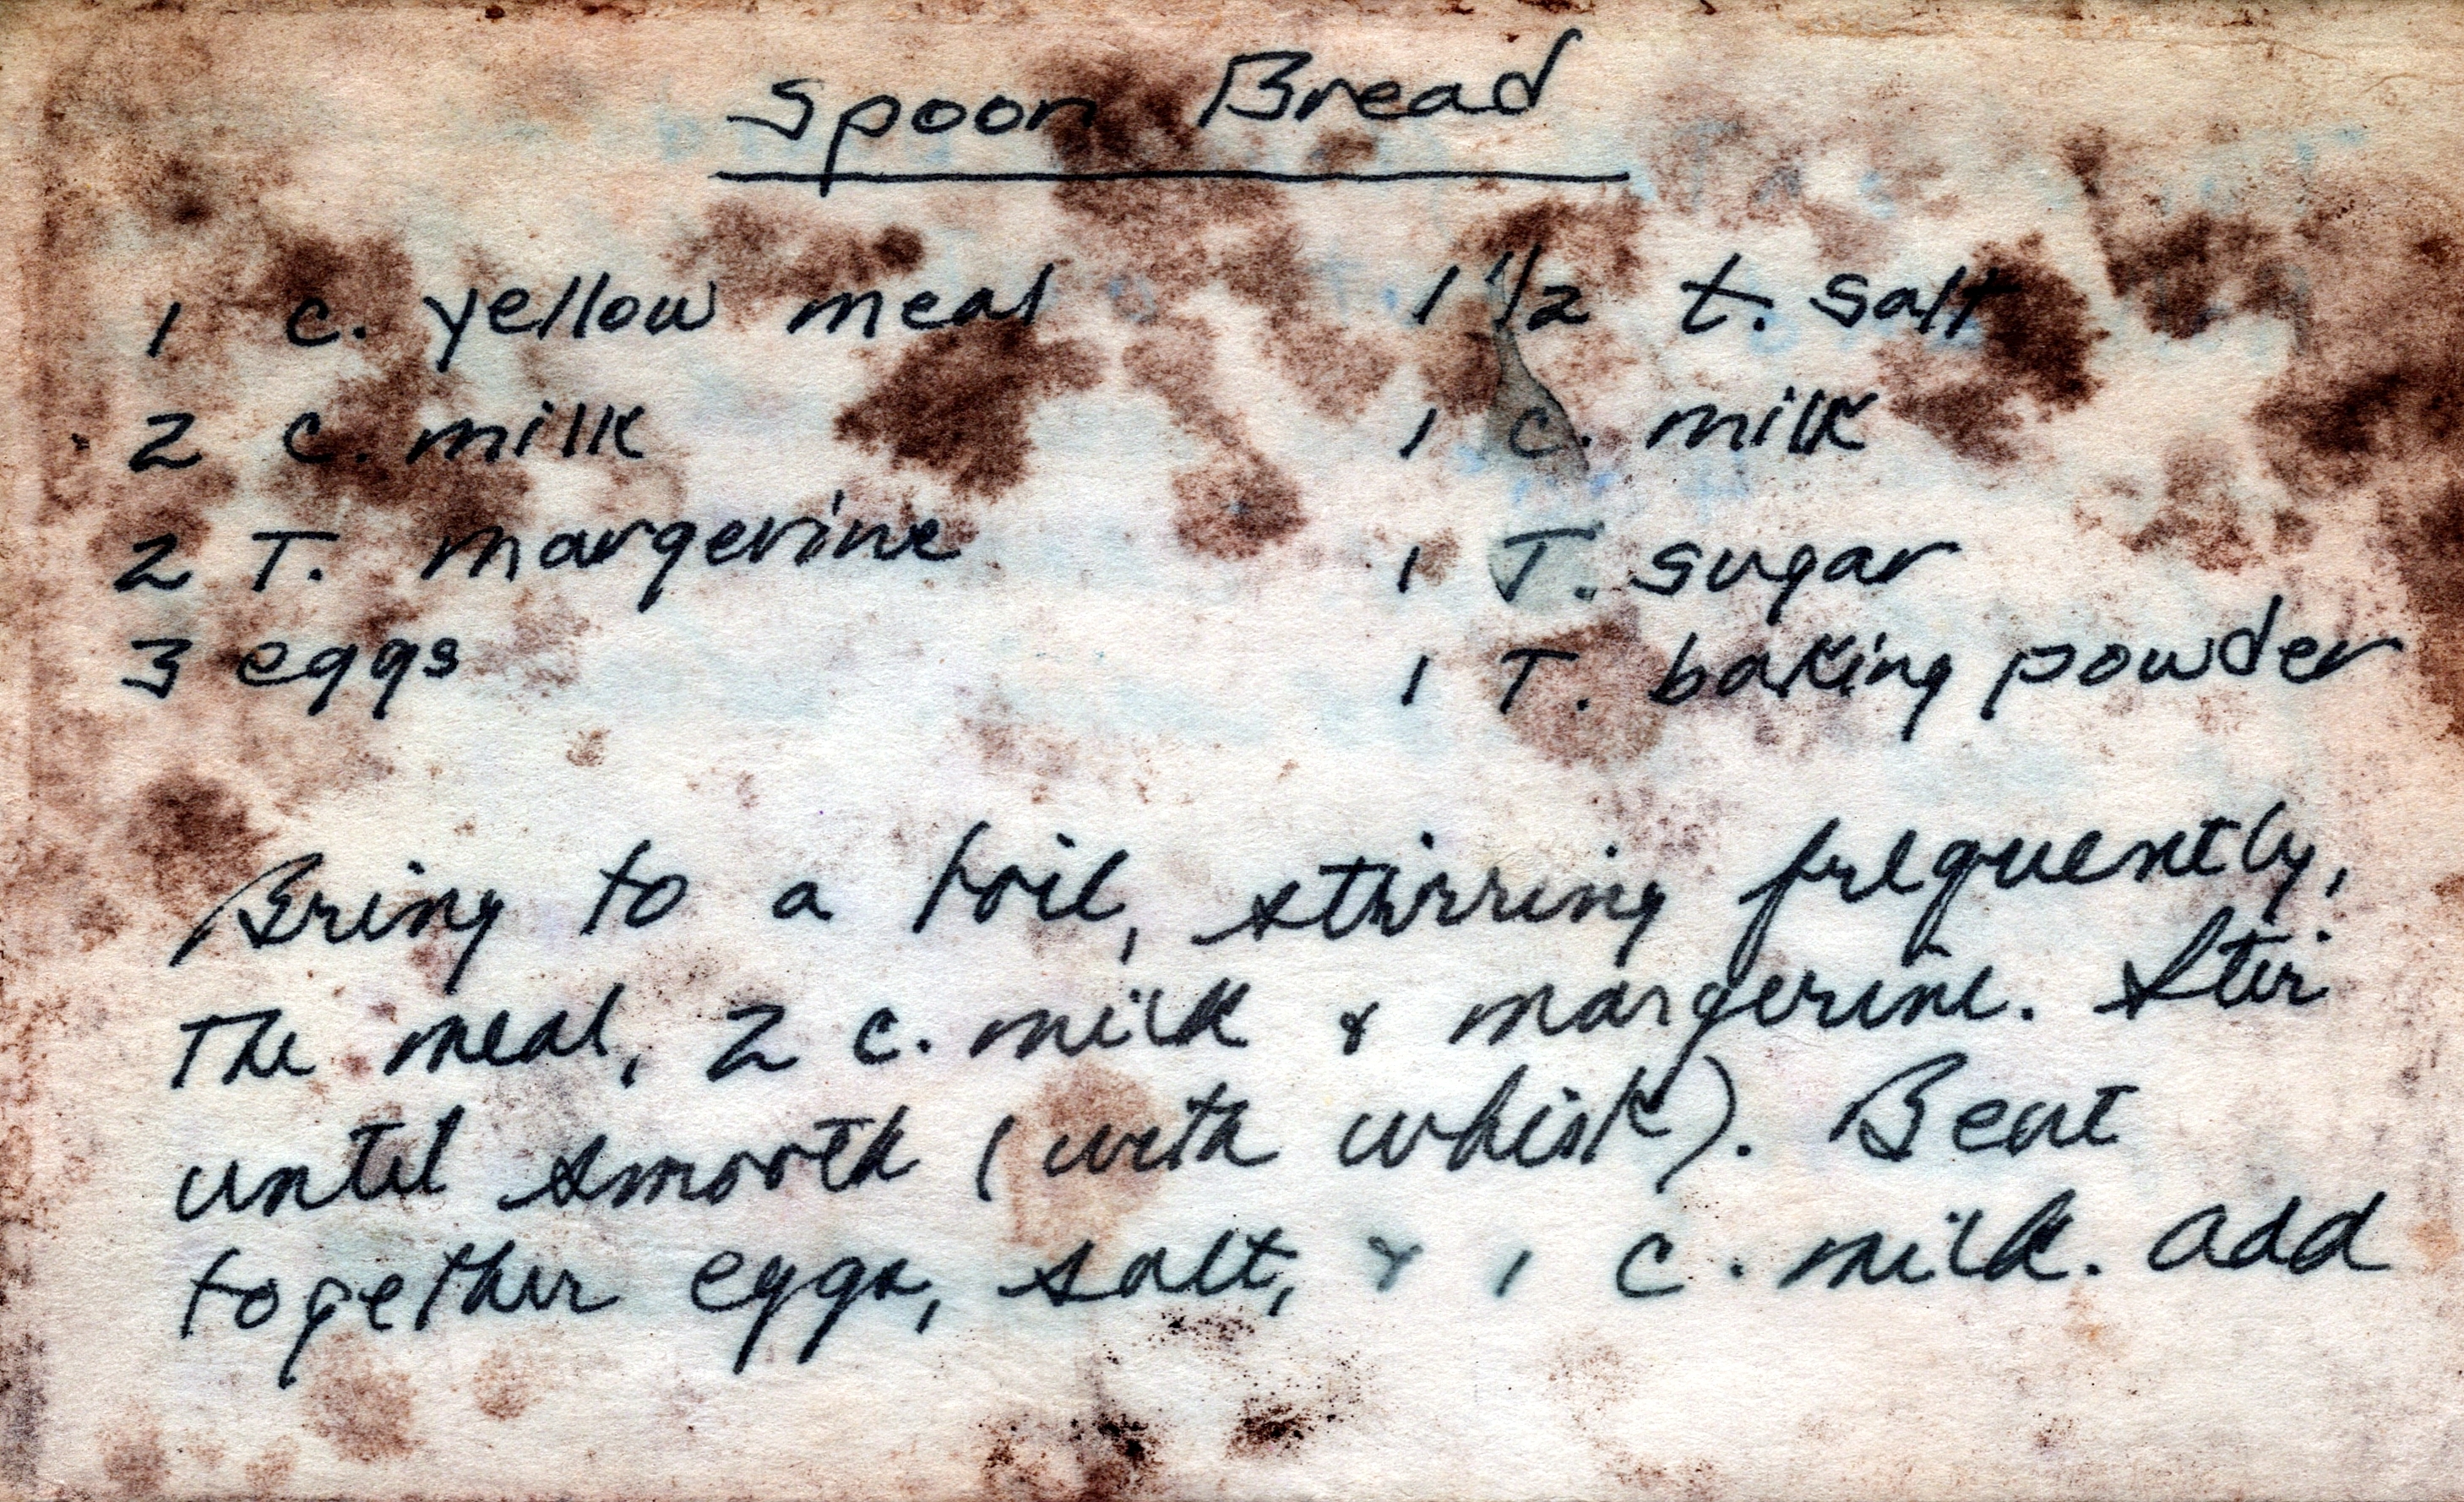 Spoon Bread
1 c. yellow meal 1 1/2 t. salt
2 c. milk 1 c. milk
2 T. margerine 1 T. sugar
3 eggs 1 T. baking powder
Bring to a boil, stirring frequently,
the meal, 2 c. milk & margerine. Stir
until smooth (with whisk). Beat
together eggs, salt, & 1 c. milk. Add